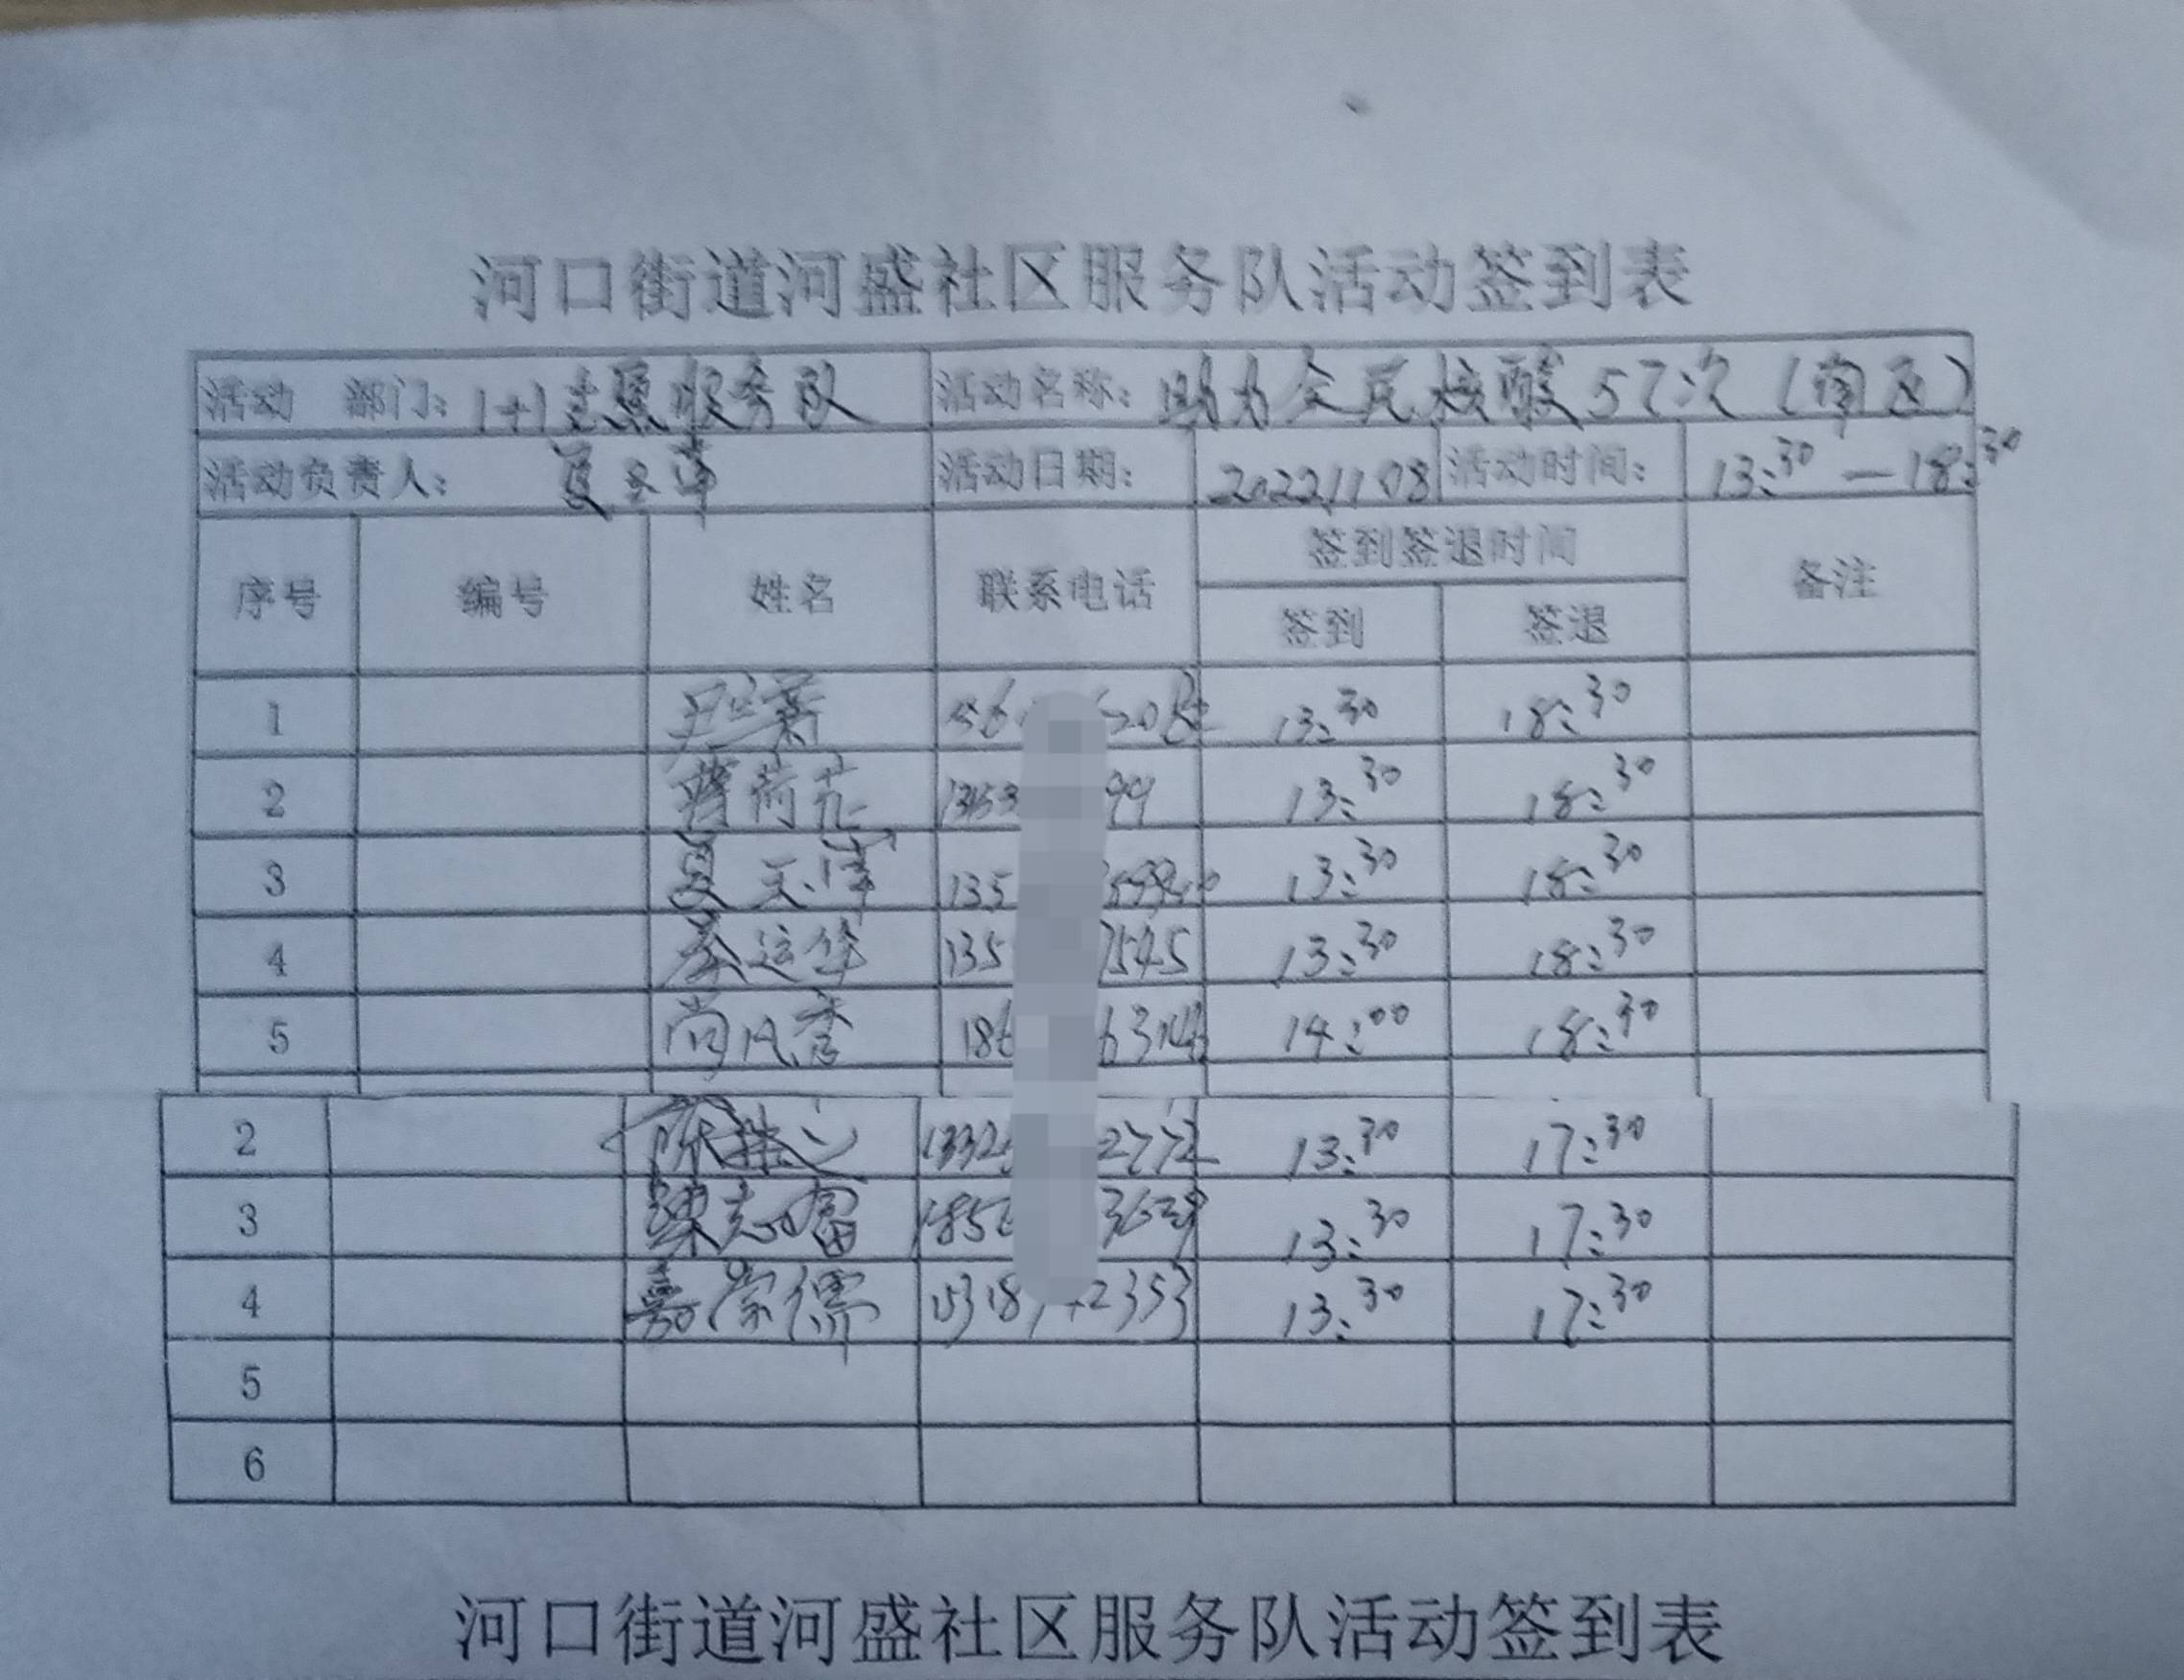 河口街道河盛社区服务队活动签到表
活动 部门: 1+1志愿服务队 活动名称: 助力全民核酸57次(南区)
活动负责人: 活动日期: 20221108 活动时间: 13:30—18:30
序号 编号 姓名 联系电话 签到签退时间 备注
签到 签退
1 13:30 18:30
2 荷花 1353 99 13:30 18:30
3 夏天 135 13:30 18:30
4 运华 135 7545 13:30 18:30
5 尚凤香 186 14:00 18:30
2 1332 2772 13:30 17:30
3 陈志富 1856 13:30 17:30
4 常儒 2353 13:30 17:30
5
6
河口街道河盛社区服务队活动签到表